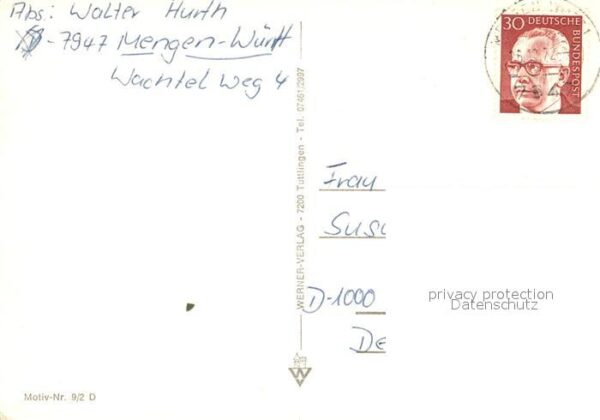 Abs: Walter Hurth
D-7947 Mengen-Württ
Wachtel Weg 4
30 DEUTSCHE BUNDESPOST
WERNER-VERLAG - 7200 Tuttlingen - Tel. 07461/2997
Frau
Susi
D-1000
De
privacy protection
Datenschutz
W
Motiv-Nr. 9/2 D